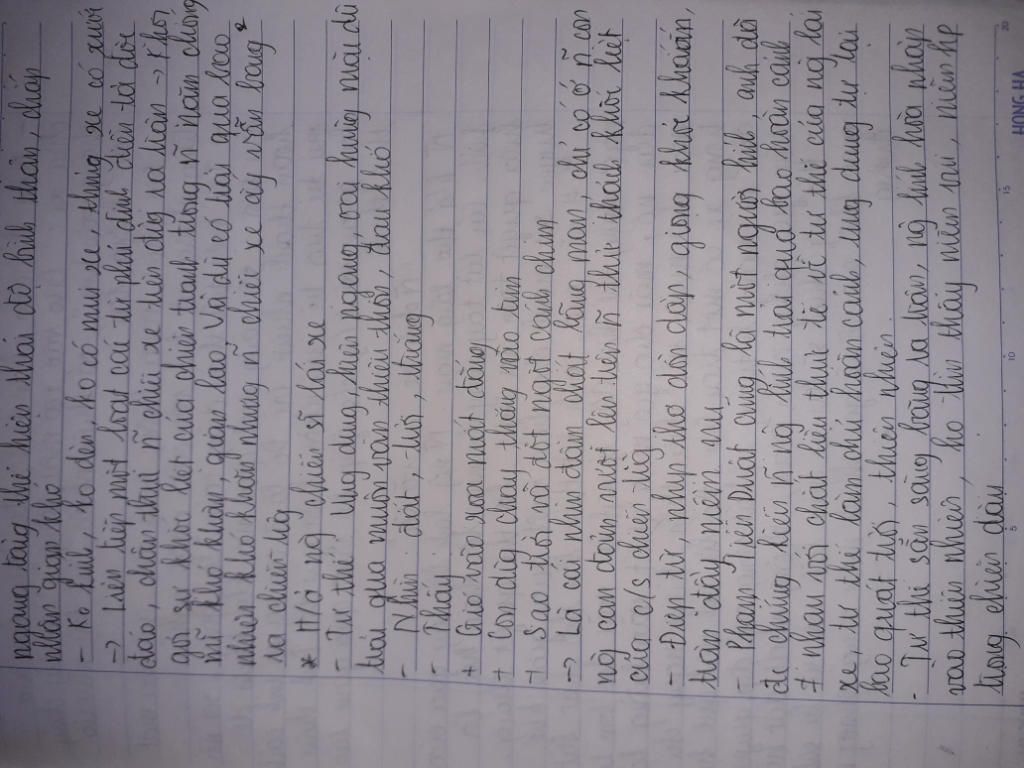 ngang tàng thể hiện thái độ bình thản, chấp
nhận gian khó
- Ko kính, ko đèn, ko có mui xe, thùng xe có xước
→ Liên tiếp một loạt các từ phủ định diễn tả độc
đáo, chân thực n~ chiếc xe trên đg ra trận → Phơi
gợi sự khốc liệt của chiến tranh trong n~ năm chống
Mĩ khó khăn, gian lao. Và dù có trải qua bao
nhiêu khó khăn nhưng n~ chiếc xe ấy vẫn băng
ra chiến trg
* H/ả ng chiến sĩ lái xe
- Tư thế: Ung dung, hiên ngang, oai hùng mặc dù
trải qua muôn vàn thiếu thốn, đau khổ
- Nhìn: đất, trời, thẳng
- Thấy
+ Gió vào xoa mắt đắng
+ Con đg chạy thẳng vào tim
+ Sao trời và đột ngột cánh chim
→ Là cái nhìn đậm chất lãng mạn, chỉ có ở n~ con
ng can đảm vượt lên trên n~ thử thách khốc liệt
của c/s chiến trg
- Điệp từ, nhịp thơ dồn dập, giọng khỏe khoắn,
tràn đầy niềm vui
- Phạm Tiến Duật cũng là một người lính, anh đã
đi chứng kiến n~ ng lính trải qua bao hoàn cảnh
≠ nhau với chất liệu thực tế về tư thế của ng lái
xe, tư thế làm chủ hoàn cảnh, ung dung tự tại
bao quát trời, thiên nhiên
- Tư thế sẵn sàng băng ra trận, ng lính hòa nhập
vào thiên nhiên, họ tìm thấy niềm vui, niềm hp
trong chiến đấu
HONG HA
5
10
15
20